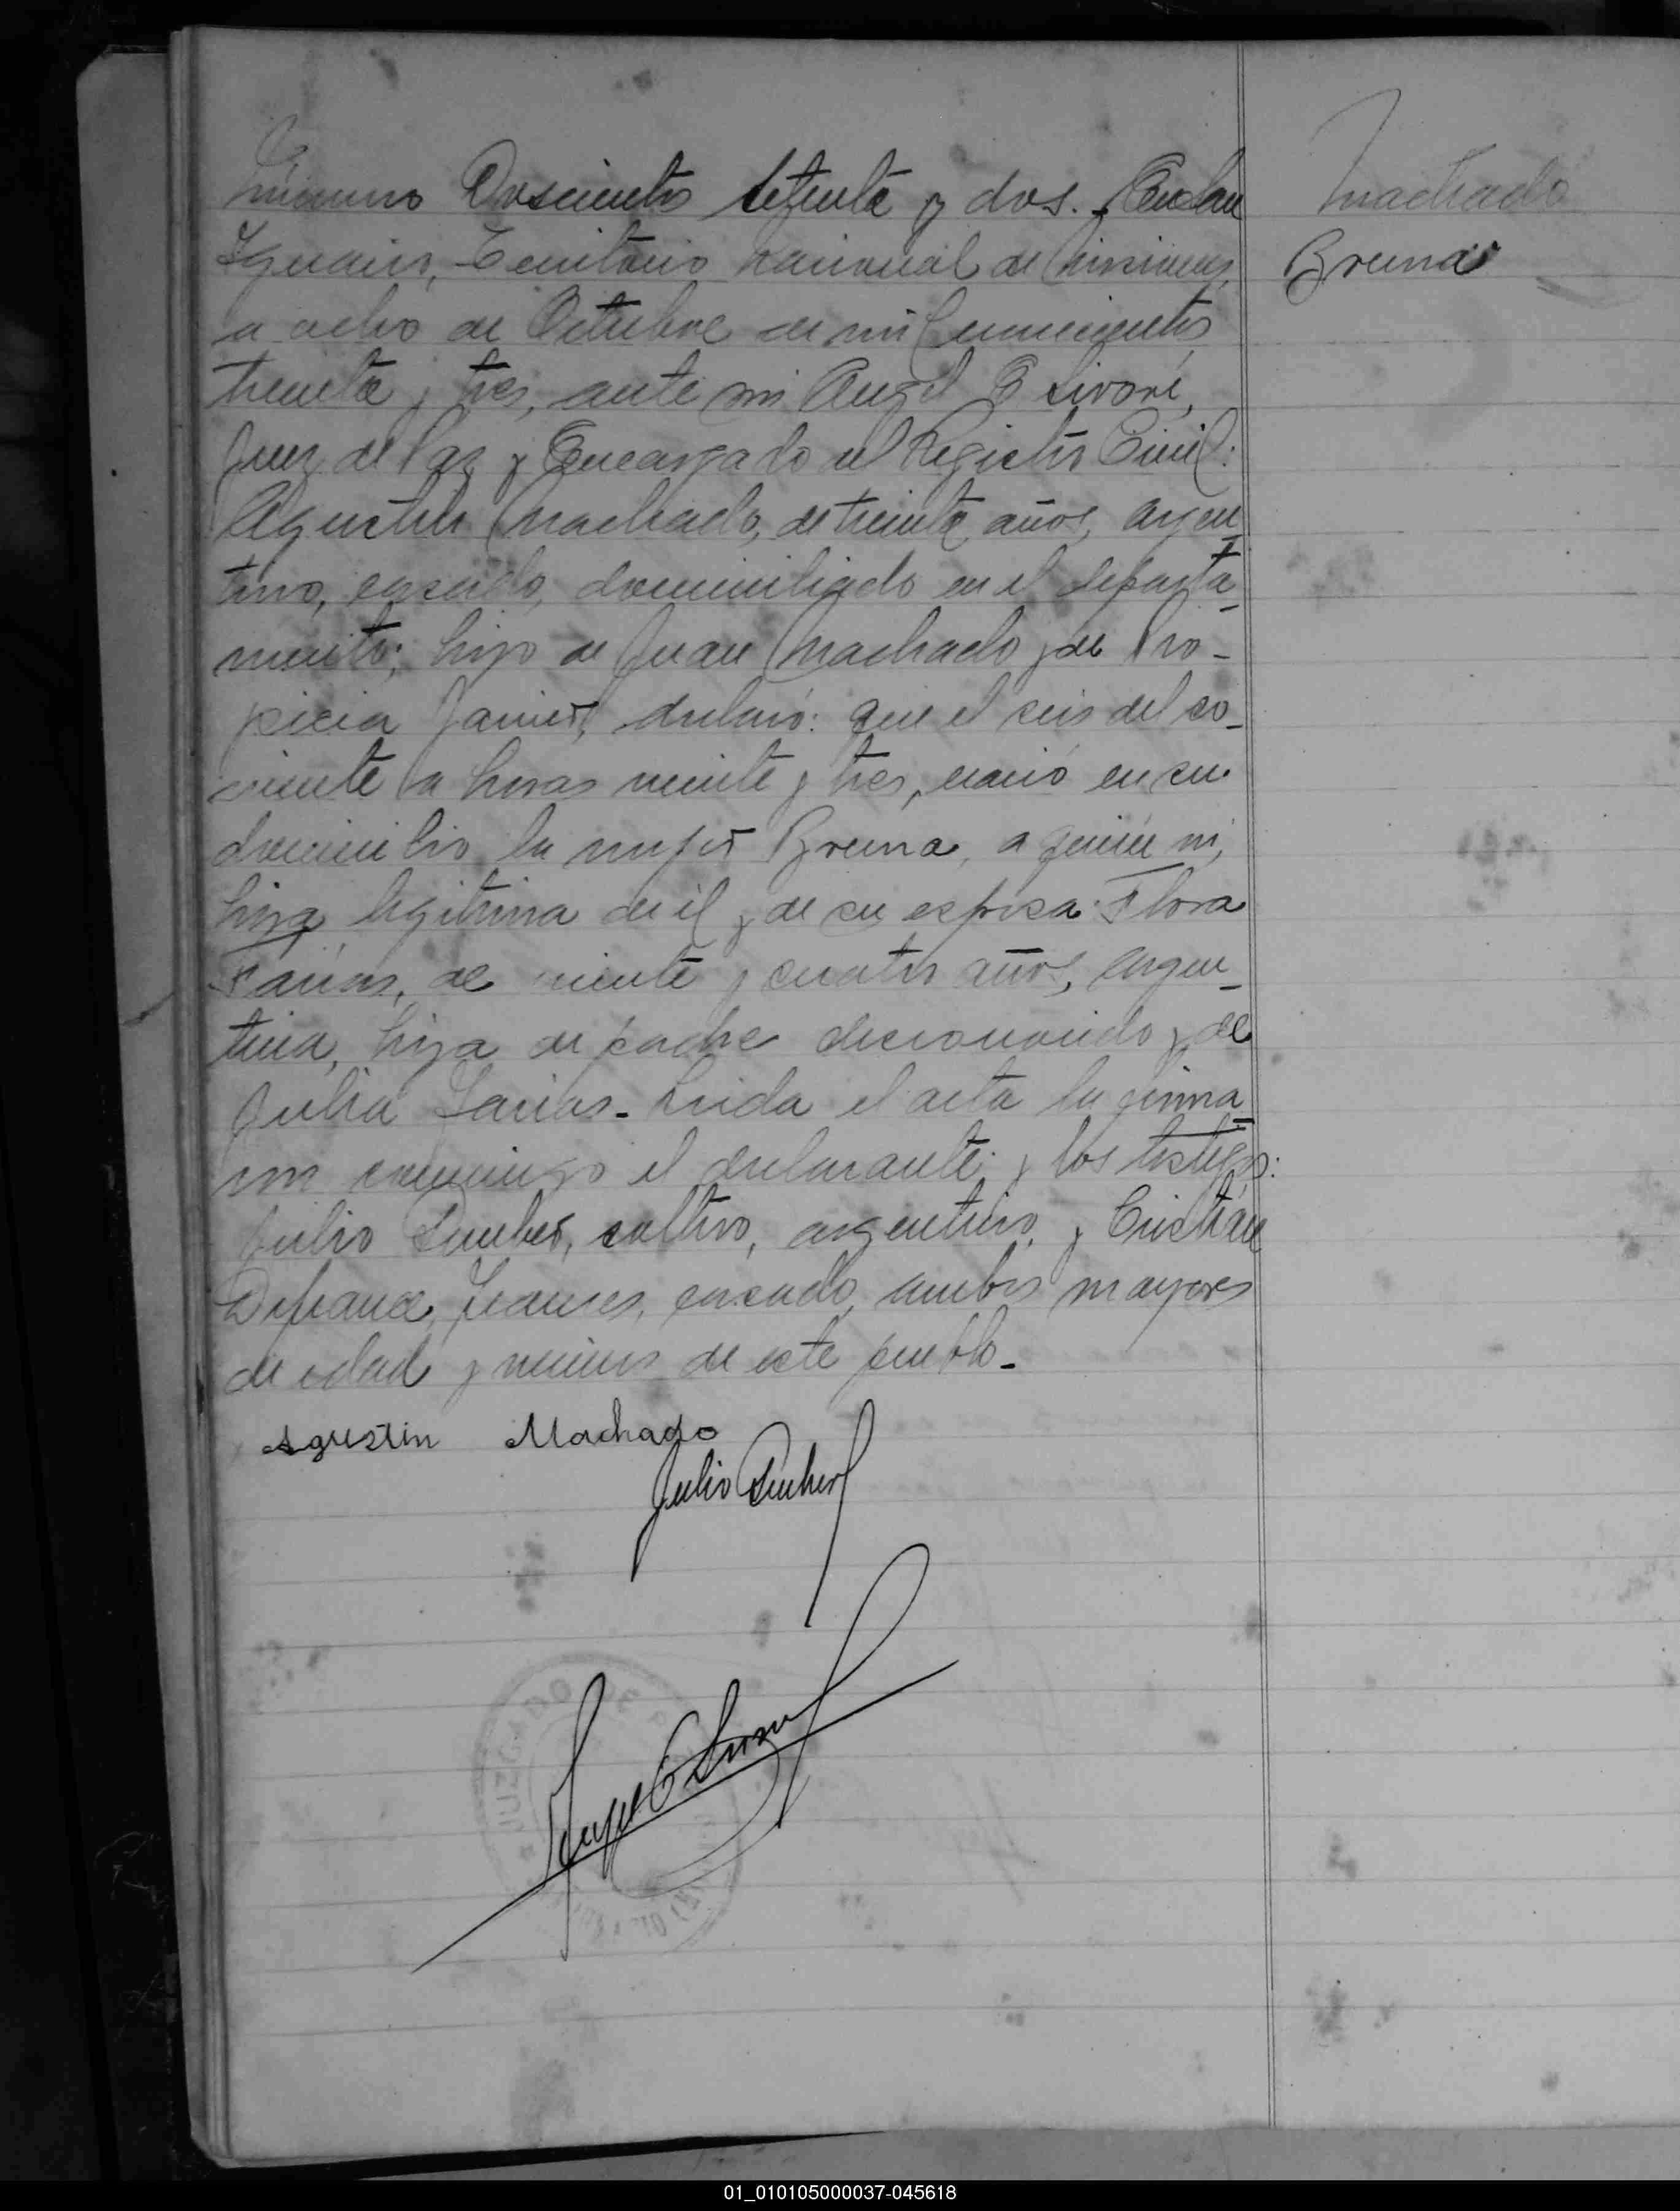 Número Doscientos setenta y dos. En San
Ignacio, Territorio nacional de Misiones,
a ocho de Octubre de mil novecientos
treinta y tres, ante mi Angel E Sivori,
Juez de Paz y Encargado del Registro Civil:
Agustin Machado, de treinta años, argen
tino, casado, domiciliado en el departa_
mento; hijo de Juan Machado y de Pro_
picia Javier, declaró: que el seis del co_
rriente a horas veinte y tres, nació en su
domicilio la mujer Brema, a quien vi,
hija legitima de él y de su esposa Flora
Farias, de veinte y cuatro años, argen_
tina, hija de padre desconocido y de
Julia Farias_ Leida el acta la firma_
ron conmigo el declarante y los testigos:
Julio soltero, argentino, y Cristian
frances, casado, ambos mayores
de edad y vecinos de este pueblo_
Agustin Machado
Julio
Angel E Sivori
Machado
Brema
01_010105000037-045618